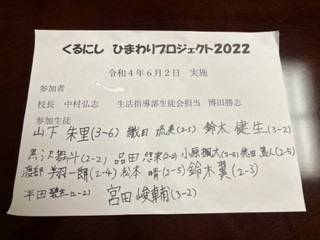 くるにし ひまわりプロジェクト2022
令和4年6月2日 実施
参加者
校長 中村弘志 生活指導部生徒会担当 博田勝志
参加生徒
山下 朱里(3-6) 織田 (2-5) 鈴木 健生(3-2)
黒沢 (2-2) 品田 悠来(2-2) 小原楓大(2-5) 徳田 (2-5)
渡部 翔一朗(2-4) 松本 晴(2-5) 鈴木翼(2-3)
半田 (2-2) 宮田 峻輔(3-2)